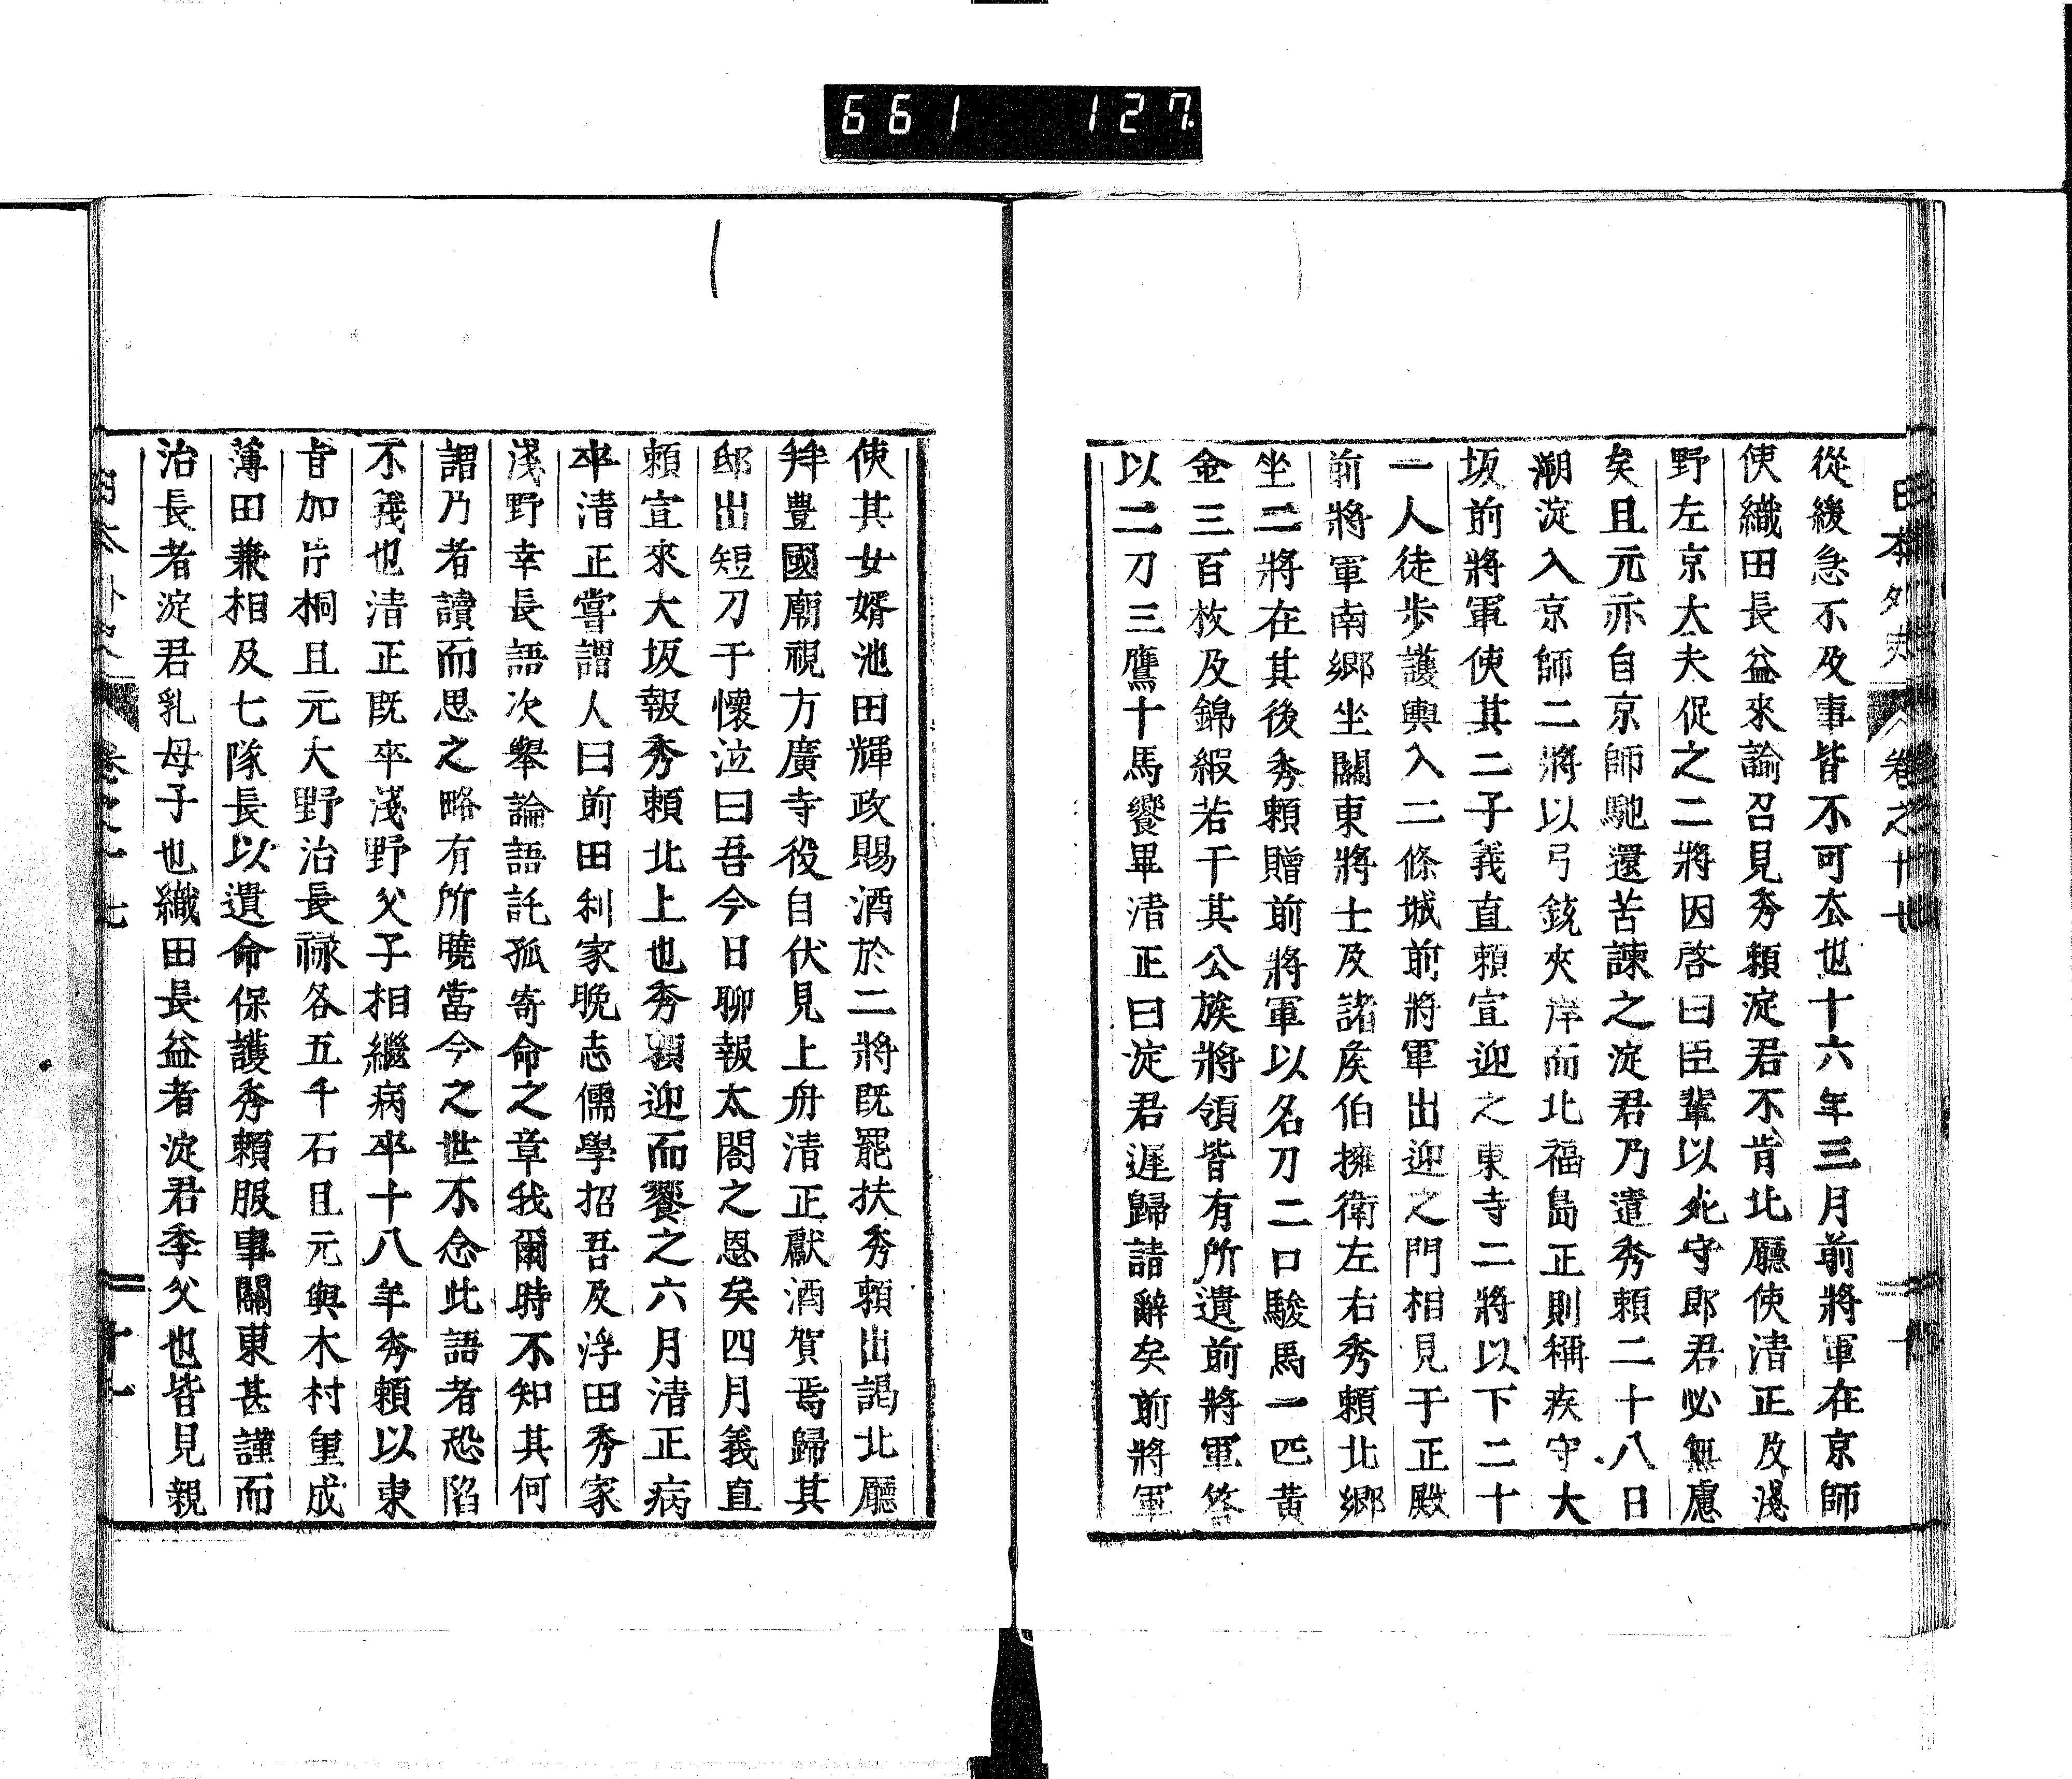 661 127
日本外史 卷之十七
從緩急不及事皆不可太也十六年三月前將軍在京師
使織田長益來諭召見秀賴淀君不肯北廳使清正及淺
野左京大夫促之二將因啓曰臣輩以死守郎君必無慮
矣且元亦自京師馳還苦諫之淀君乃遣秀賴二十八日
溯淀入京師二將以弓銃夾岸而北福島正則稱疾守大
坂前將軍使其二子義直賴宣迎之東寺二將以下二十
一人徒步護輿入二條城前將軍出迎之門相見于正殿
前將軍南鄉坐關東將士及諸矦伯擁衛左右秀賴北鄉
坐二將在其後秀賴贈前將軍以名刀二口駿馬一匹黃
金三百枚及錦緞若干其公族將領皆有所遺前將軍答
以二刀三鷹十馬饗畢清正曰淀君遲歸請辭矣前將軍
使其女婿池田輝政賜酒於二將既罷扶秀賴出謁北廳
拜豐國廟視方廣寺役自伏見上舟清正獻酒賀焉歸其
邸出短刀于懷泣曰吾今日聊報太閤之恩矣四月義直
賴宣來大坂報秀賴北上也秀賴迎而饗之六月清正病
卒清正嘗謂人曰前田利家晚志儒學招吾及浮田秀家
淺野幸長語次舉論語託孤寄命之章我爾時不知其何
謂乃者讀而思之略有所曉當今之世不念此語者恐陷
不義也清正既卒淺野父子相繼病卒十八年秀賴以東
旨加片桐且元大野治長祿各五千石且元與木村重成
薄田兼相及七隊長以遺命保護秀賴服事關東甚謹而
治長者淀君乳母子也織田長益者淀君季父也皆見親
日本外史 卷之十七 十七